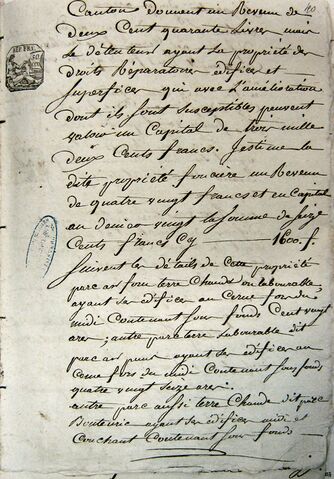 40
Canton donnent un Revenu de
deux Cent quarante Livres mais
le détenteur ayant la propriété des
droits Réparatoires édifices et
Superfices qui avec l'amelioration
dont ils sont susceptibles peuvent
valoir un Capital de trois mille
deux Cents francs. j'estime la
dite propriété foncière un Revenu
de quatre vingt francs et en Capital
au denier vingt la somme de Seize
Cents francs Cy 1600. f.
Suivent les détails de Cette propriété
parc ar forn terre Chaude ou labourable
ayant ses édifices au Cerne fors du
midi Contenant sous fond Cent vingt
ares; autre parc terre Labourable dit
parc ar puns ayant ses édifices au
cerne fors du midi Contenant sous fond
quatre vingt seize ares.
autre parc aussi terre Chaude dit parc
ayant ses édifices midi et
Couchant Contenant sous fonds